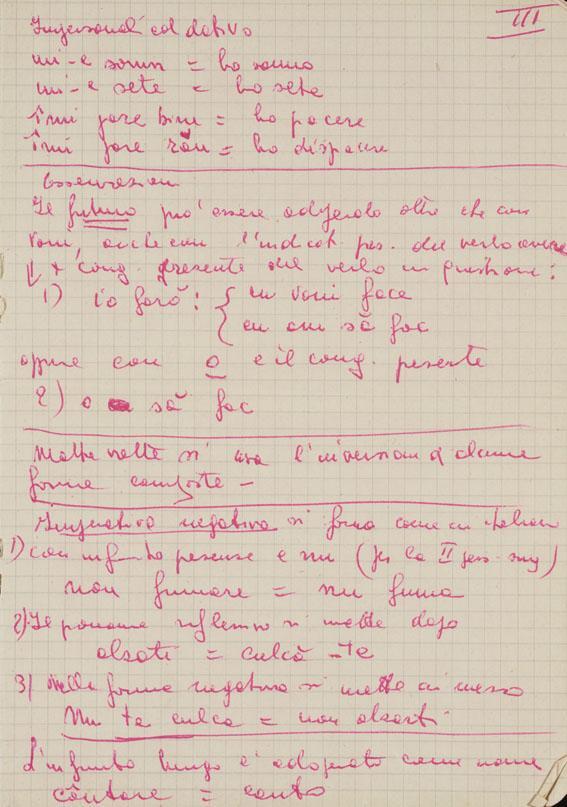 III
Impersonali col dativo
mi-e somn = ho sonno
mi-e sete = ho sete
îmi pare bine = ho piacere
îmi pare rău = ho dispiacere
Osservazioni
Il futuro può essere adoperato oltre che con
voi, anche con l'indicat. pres. del verbo avere
+ cong. presente del verbo in questione:
1) io farò: { eu voi face
{ eu am să fac
oppure con o e il cong. presente
2) o să fac
Molte volte si usa l'inversione d'alcune
forme composte –
Imperativo negativo si forma come in italiano
1) con infinito presente e nu (per la II pers. sing)
non fumare = nu fuma
2) Il pronome riflessivo si mette dopo
alzati = culcă-te
3) Nella forma negativa si mette in mezzo
Nu te culca = non alzarti
L'infinito lungo è adoperato come nome
cântare = canto